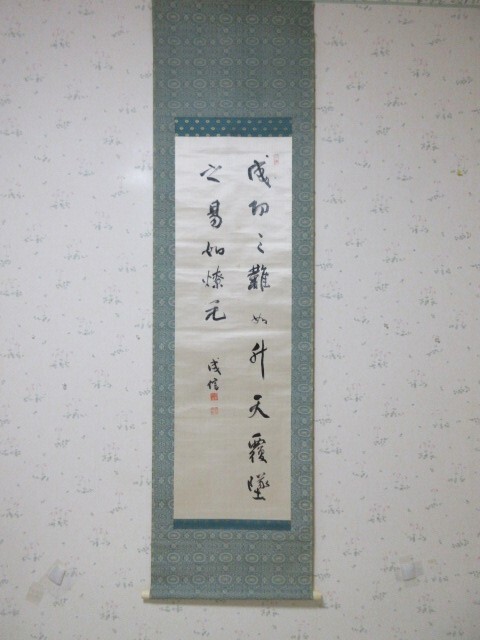 成功之難如升天覆墜
之易如燎毛
成信